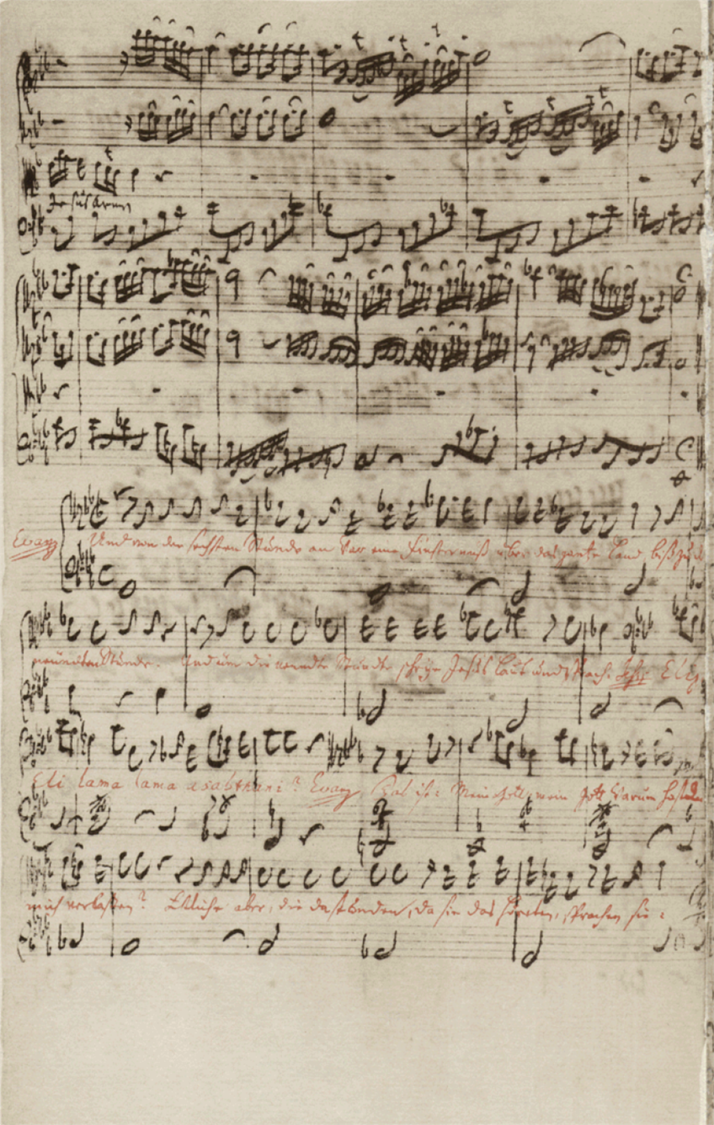 Jesus Armen
Evang Und von der sechsten Stunde an war eine Finsterniß über das gantze Land biß zu der
neündten Stunde. Und um die neundte Stunde schrie Jesus laut und sprach. Eli,
Eli lama lama asabthani? Evang Das ist: Mein Gott, mein Gott warum hastu
mich verlaßen? Etliche aber, die da stunden, da sie das höreten, sprachen sie: